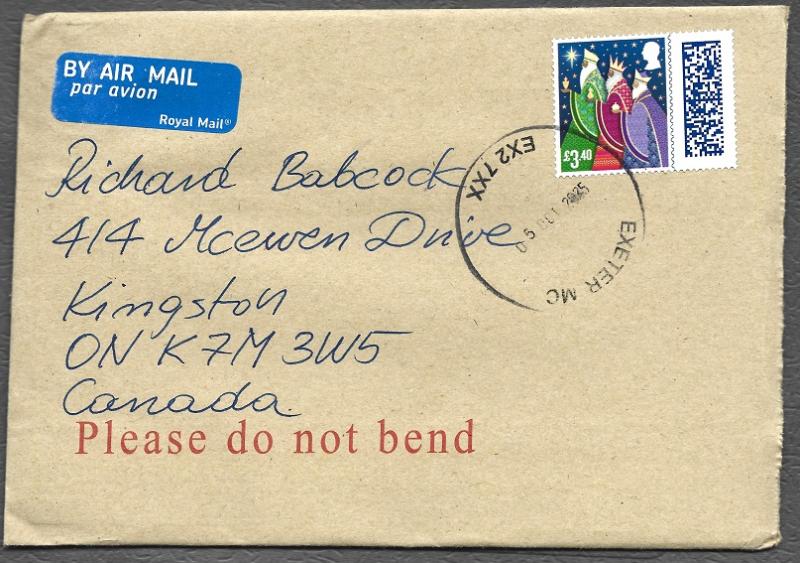 BY AIR MAIL
par avion
Royal Mail®
£3.40
EX2 7XX
05 OCT 2025
EXETER MC
Richard Babcock
414 Mcewen Drive
Kingston
ON K7M 3W5
Canada
Please do not bend